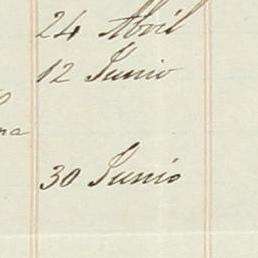 24 Abril
12 Junio
na
30 Junio